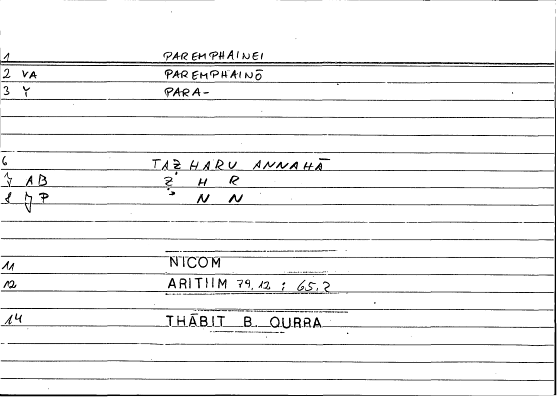 1 PAREMPHAINEI
2 VA PAREMPHAINŌ
3 Y PARA-
6 TAẒHARU ANNAHĀ
7 AB Ẓ H R
8 P N N
11 NICOM
12 ARITIIM 79.12 : 65.2
14 THĀBIT B. QURRA